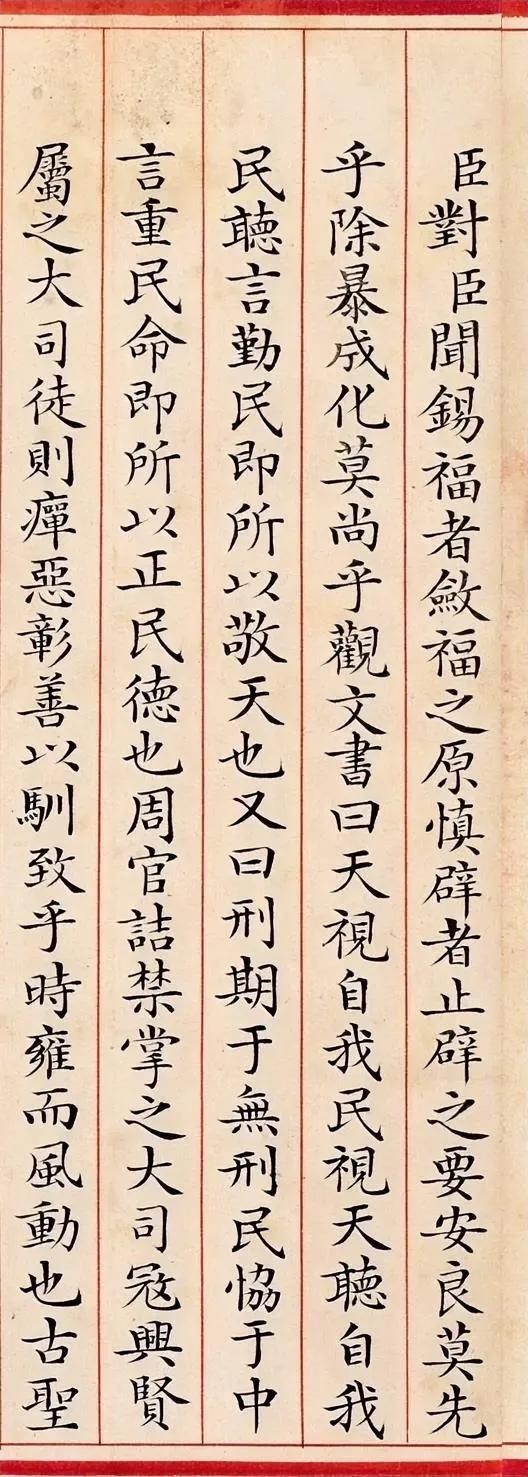 臣對臣聞錫福者斂福之原慎辟者止辟之要安良莫先
乎除暴成化莫尚乎觀文書曰天視自我民視天聽自我
民聽言勤民即所以敬天也又曰刑期于無刑民恊于中
言重民命即所以正民德也周官詰禁掌之大司寇興賢
屬之大司徒則癉惡彰善以馴致乎時雍而風動也古聖